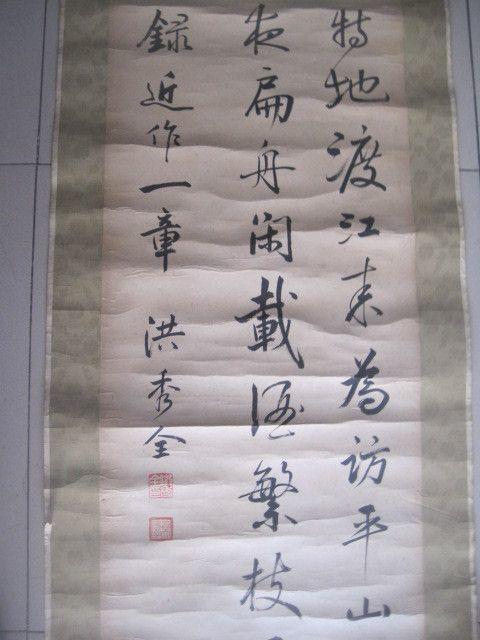 特地渡江来為訪平山
夜扁舟閑載酒繁枝
録近作一章 洪秀全